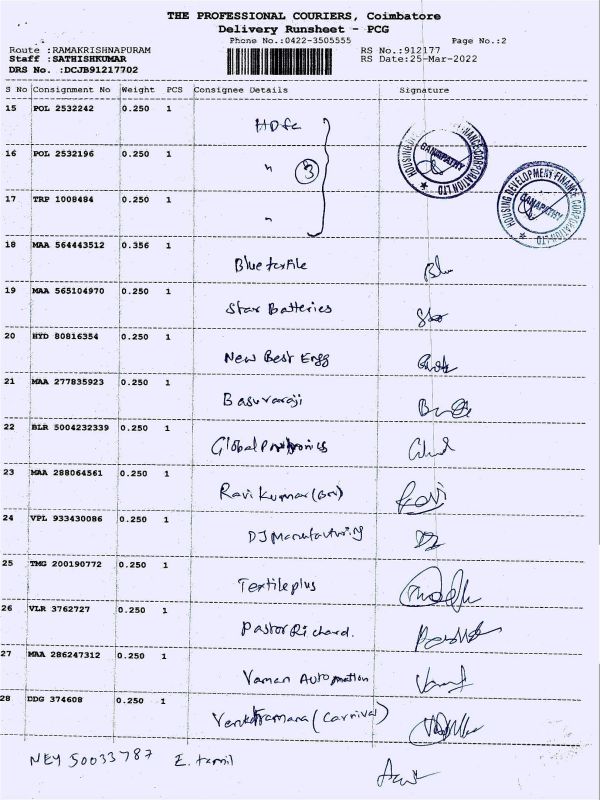 THE PROFESSIONAL COURIERS, Coimbatore
Delivery Runsheet - PCG
Phone No.:0422-3505555 Page No.:2
Route :RAMAKRISHNAPURAM RS No.:912177
Staff :SATHISHKUMAR RS Date:25-Mar-2022
DRS No. :DCJB91217702
S No Consignment No Weight PCS Consignee Details Signature
15 POL 2532242 0.250 1 HDfc
16 POL 2532196 0.250 1 " 3
17 TRP 1008484 0.250 1 "
HOUSING DEVELOPMENT FINANCE CORPORATION LTD GANAPATHY
18 MAA 564443512 0.356 1
19 MAA 565104970 0.250 1 Star Batteries
20 HYD 80816354 0.250 1 New Best Engg
21 MAA 277835923 0.250 1 Basuvaraji
22 BLR 5004232339 0.250 1 Global
23 MAA 288064561 0.250 1 Ravi Kumar Ravi
24 VPL 933430086 0.250 1 DJ Manufacturing
25 TMG 200190772 0.250 1 Textile plus
26 VLR 3762727 0.250 1 Pastor Richard.
27 MAA 286247312 0.250 1 Vaman Automation
28 DDG 374608 0.250 1 Venkatramana (Carnival)
NEY 50033787 E. tamil